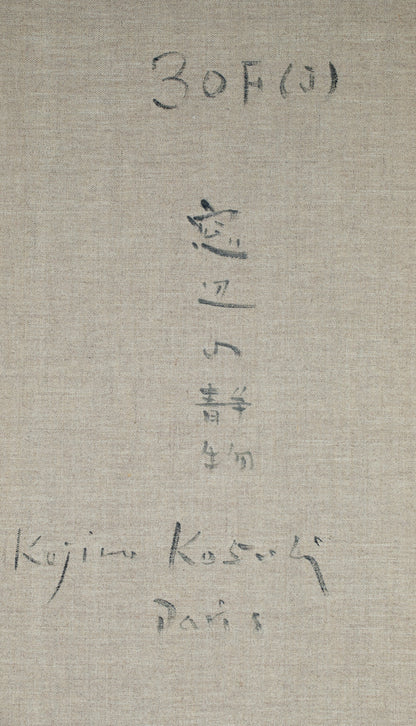 30F(J)
窓辺の静物
Kojiro Kosugi
Paris